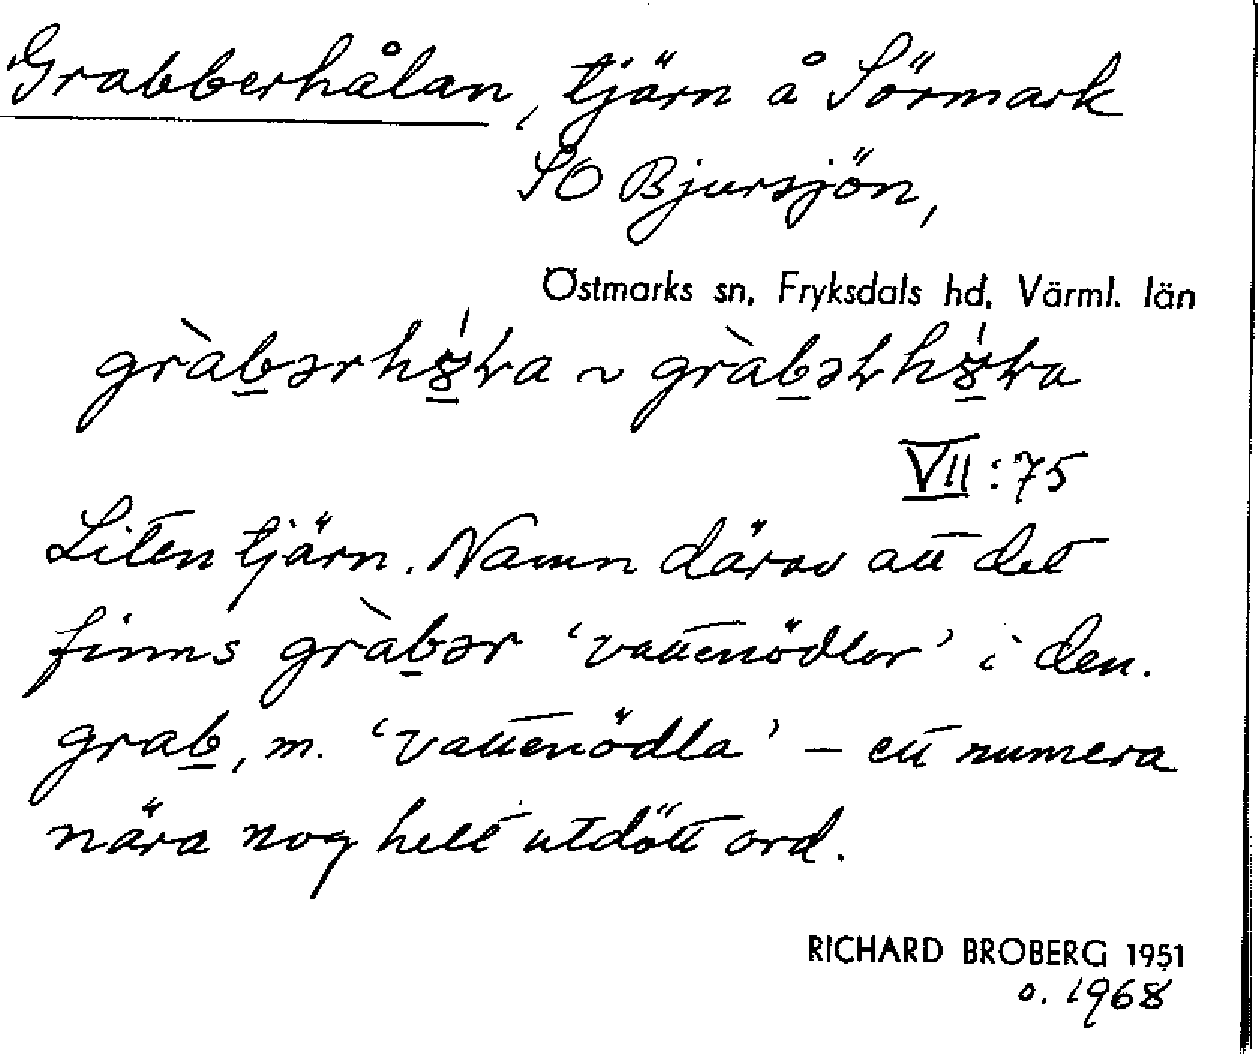 Grabberhålan, tjärn å Sörmark
SO Bjursjön,
Östmarks sn, Fryksdals hd, Värml. län
VII:75
Liten tjärn. Namn därav att det
finns gràbər 'vattenödlor' i den.
grab, m. 'vattenödla' – ett numera
nära nog helt utdött ord.
RICHARD BROBERG 1951
o. 1968